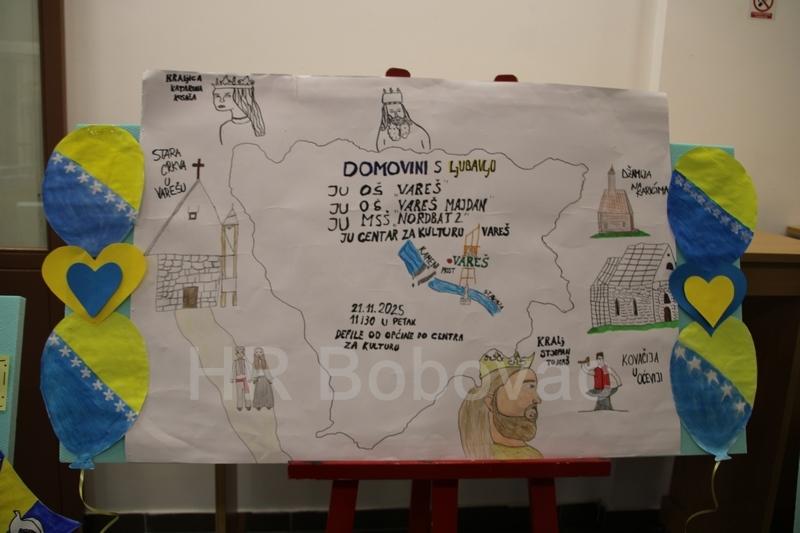 KRALJICA
KATARINA
KOSAČA
STARA
CRKVA
U
VAREŠU
DOMOVINI S LJUBAVLJU
JU OŠ "VAREŠ"
JU OŠ "VAREŠ MAJDAN"
JU MSŠ "NORDBAT 2"
JU CENTAR ZA KULTURU VAREŠ
KAMENI
MOST
VAREŠ
STAVNJA
21.11.2025
11:30 U PETAK
DEFILE OD OPĆINE DO CENTRA
ZA KULTURU
DŽAMIJA
NA
KARIĆIMA
KRALJ
STJEPAN
TOMAŠ
KOVAČIJA
U
OĆEVIJI
HR Bobovac